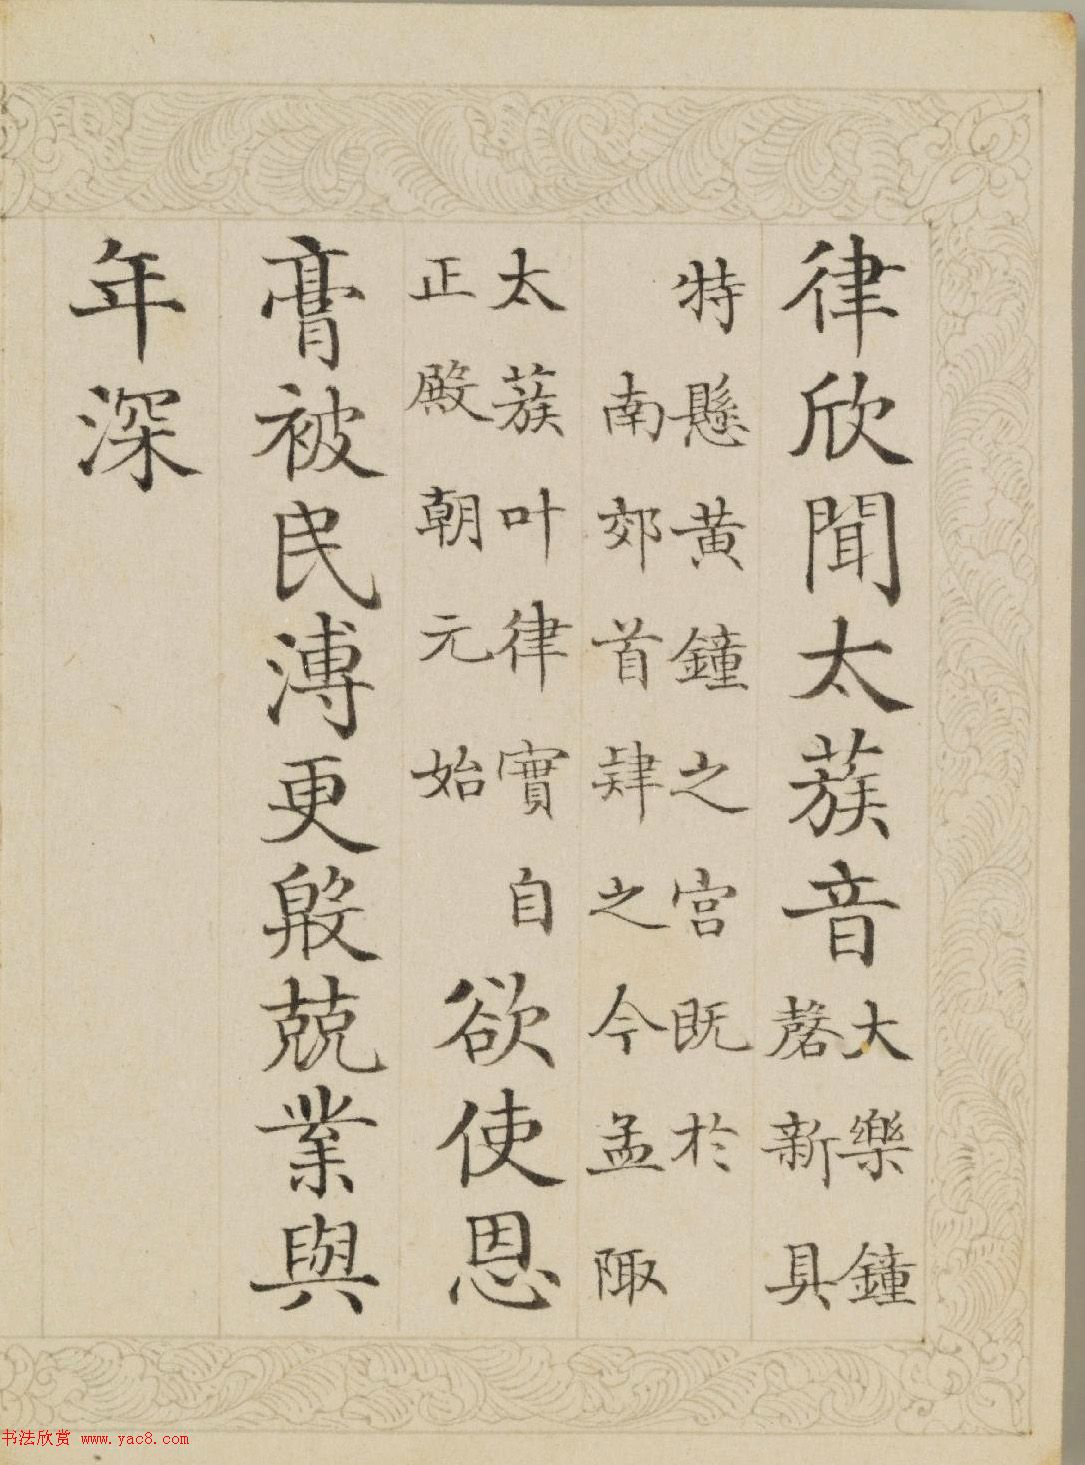 律欣聞太蔟音大樂鐘
磬新具
特懸黃鐘之宫既於
南郊首肄之今孟陬
太蔟叶律實自
正殿朝元始欲使恩
膏被民溥更殷兢業與
年深
书法欣赏 www.yac8.com